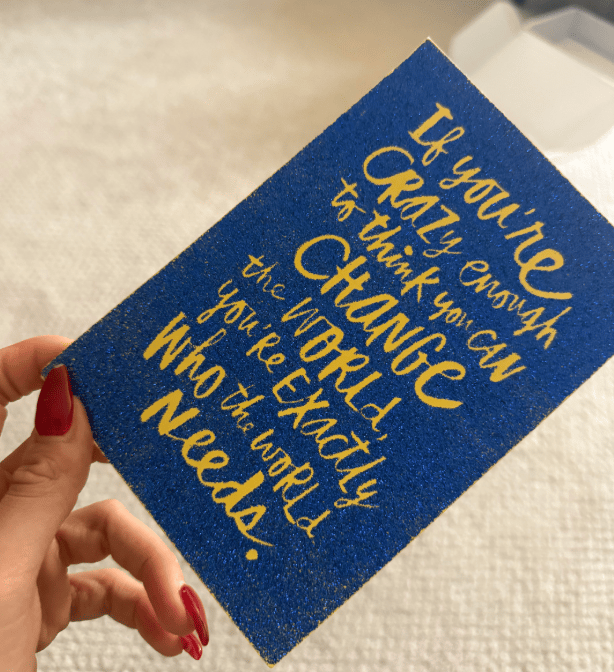 If you're
CRazy enough
to think you can
CHANGE
the WORLd,
you're Exactly
Who the woRld
Needs.